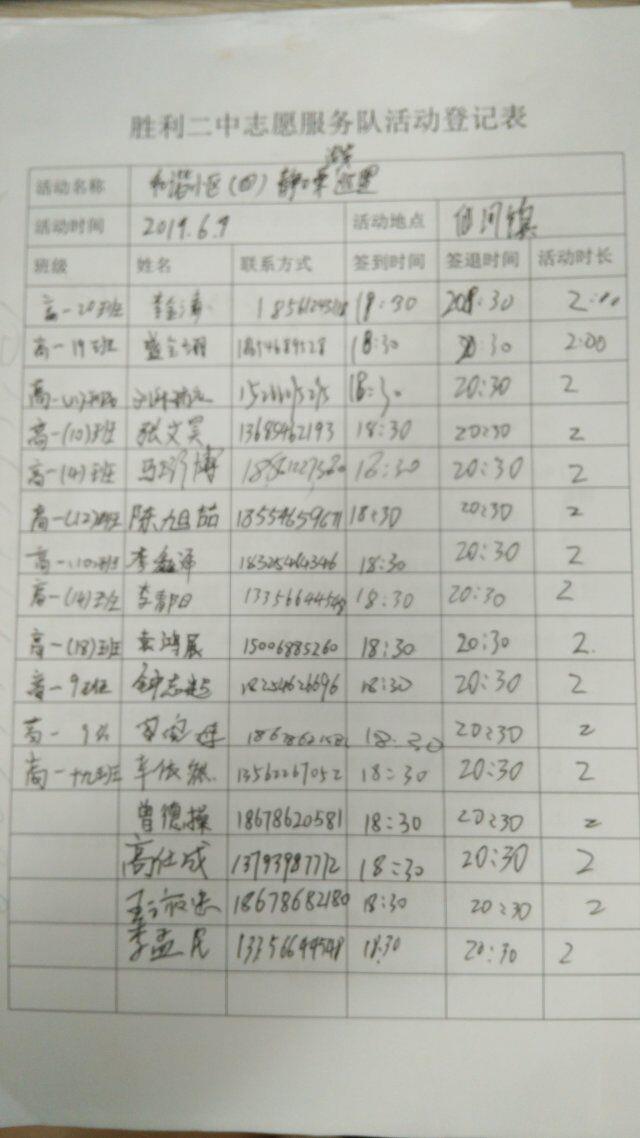 胜利二中志愿服务队活动登记表
活动名称 和谐小区（四）
活动时间 2019.6.9 活动地点 镇
班级 姓名 联系方式 签到时间 签退时间 活动时长
高一20班 18:30 :30 2:00
高一19班 18:30 :30 2:00
高一 18:30 20:30 2
高一(10)班 张文昊 13685462193 18:30 20:30 2
高一(4)班 博 18:30 20:30 2
高一(12)班 陈旭喆 18554659671 18:30 20:30 2
高一(10)班 李鑫泽 18325464346 18:30 20:30 2
高一(14)班 李 18:30 20:30 2
高一(18)班 袁鸿展 15006885260 18:30 20:30 2.
高一9班 钟志 18254626696 18:30 20:30 2
高一 9 18:30 20:30 2
高一十九班 车依 13562267052 18:30 20:30 2
曾德操 18678620581 18:30 20:30 2
高仕成 13793987712 18:30 20:30 2
18678682180 18:30 20:30 2
李孟民 13356644548 18:30 20:30 2